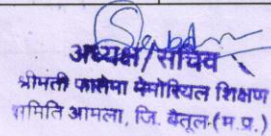 अध्यक्ष/सचिव
श्रीमती फातेमा मेमोरियल शिक्षण
समिति आमला, जि. बैतूल (म.प्र.)